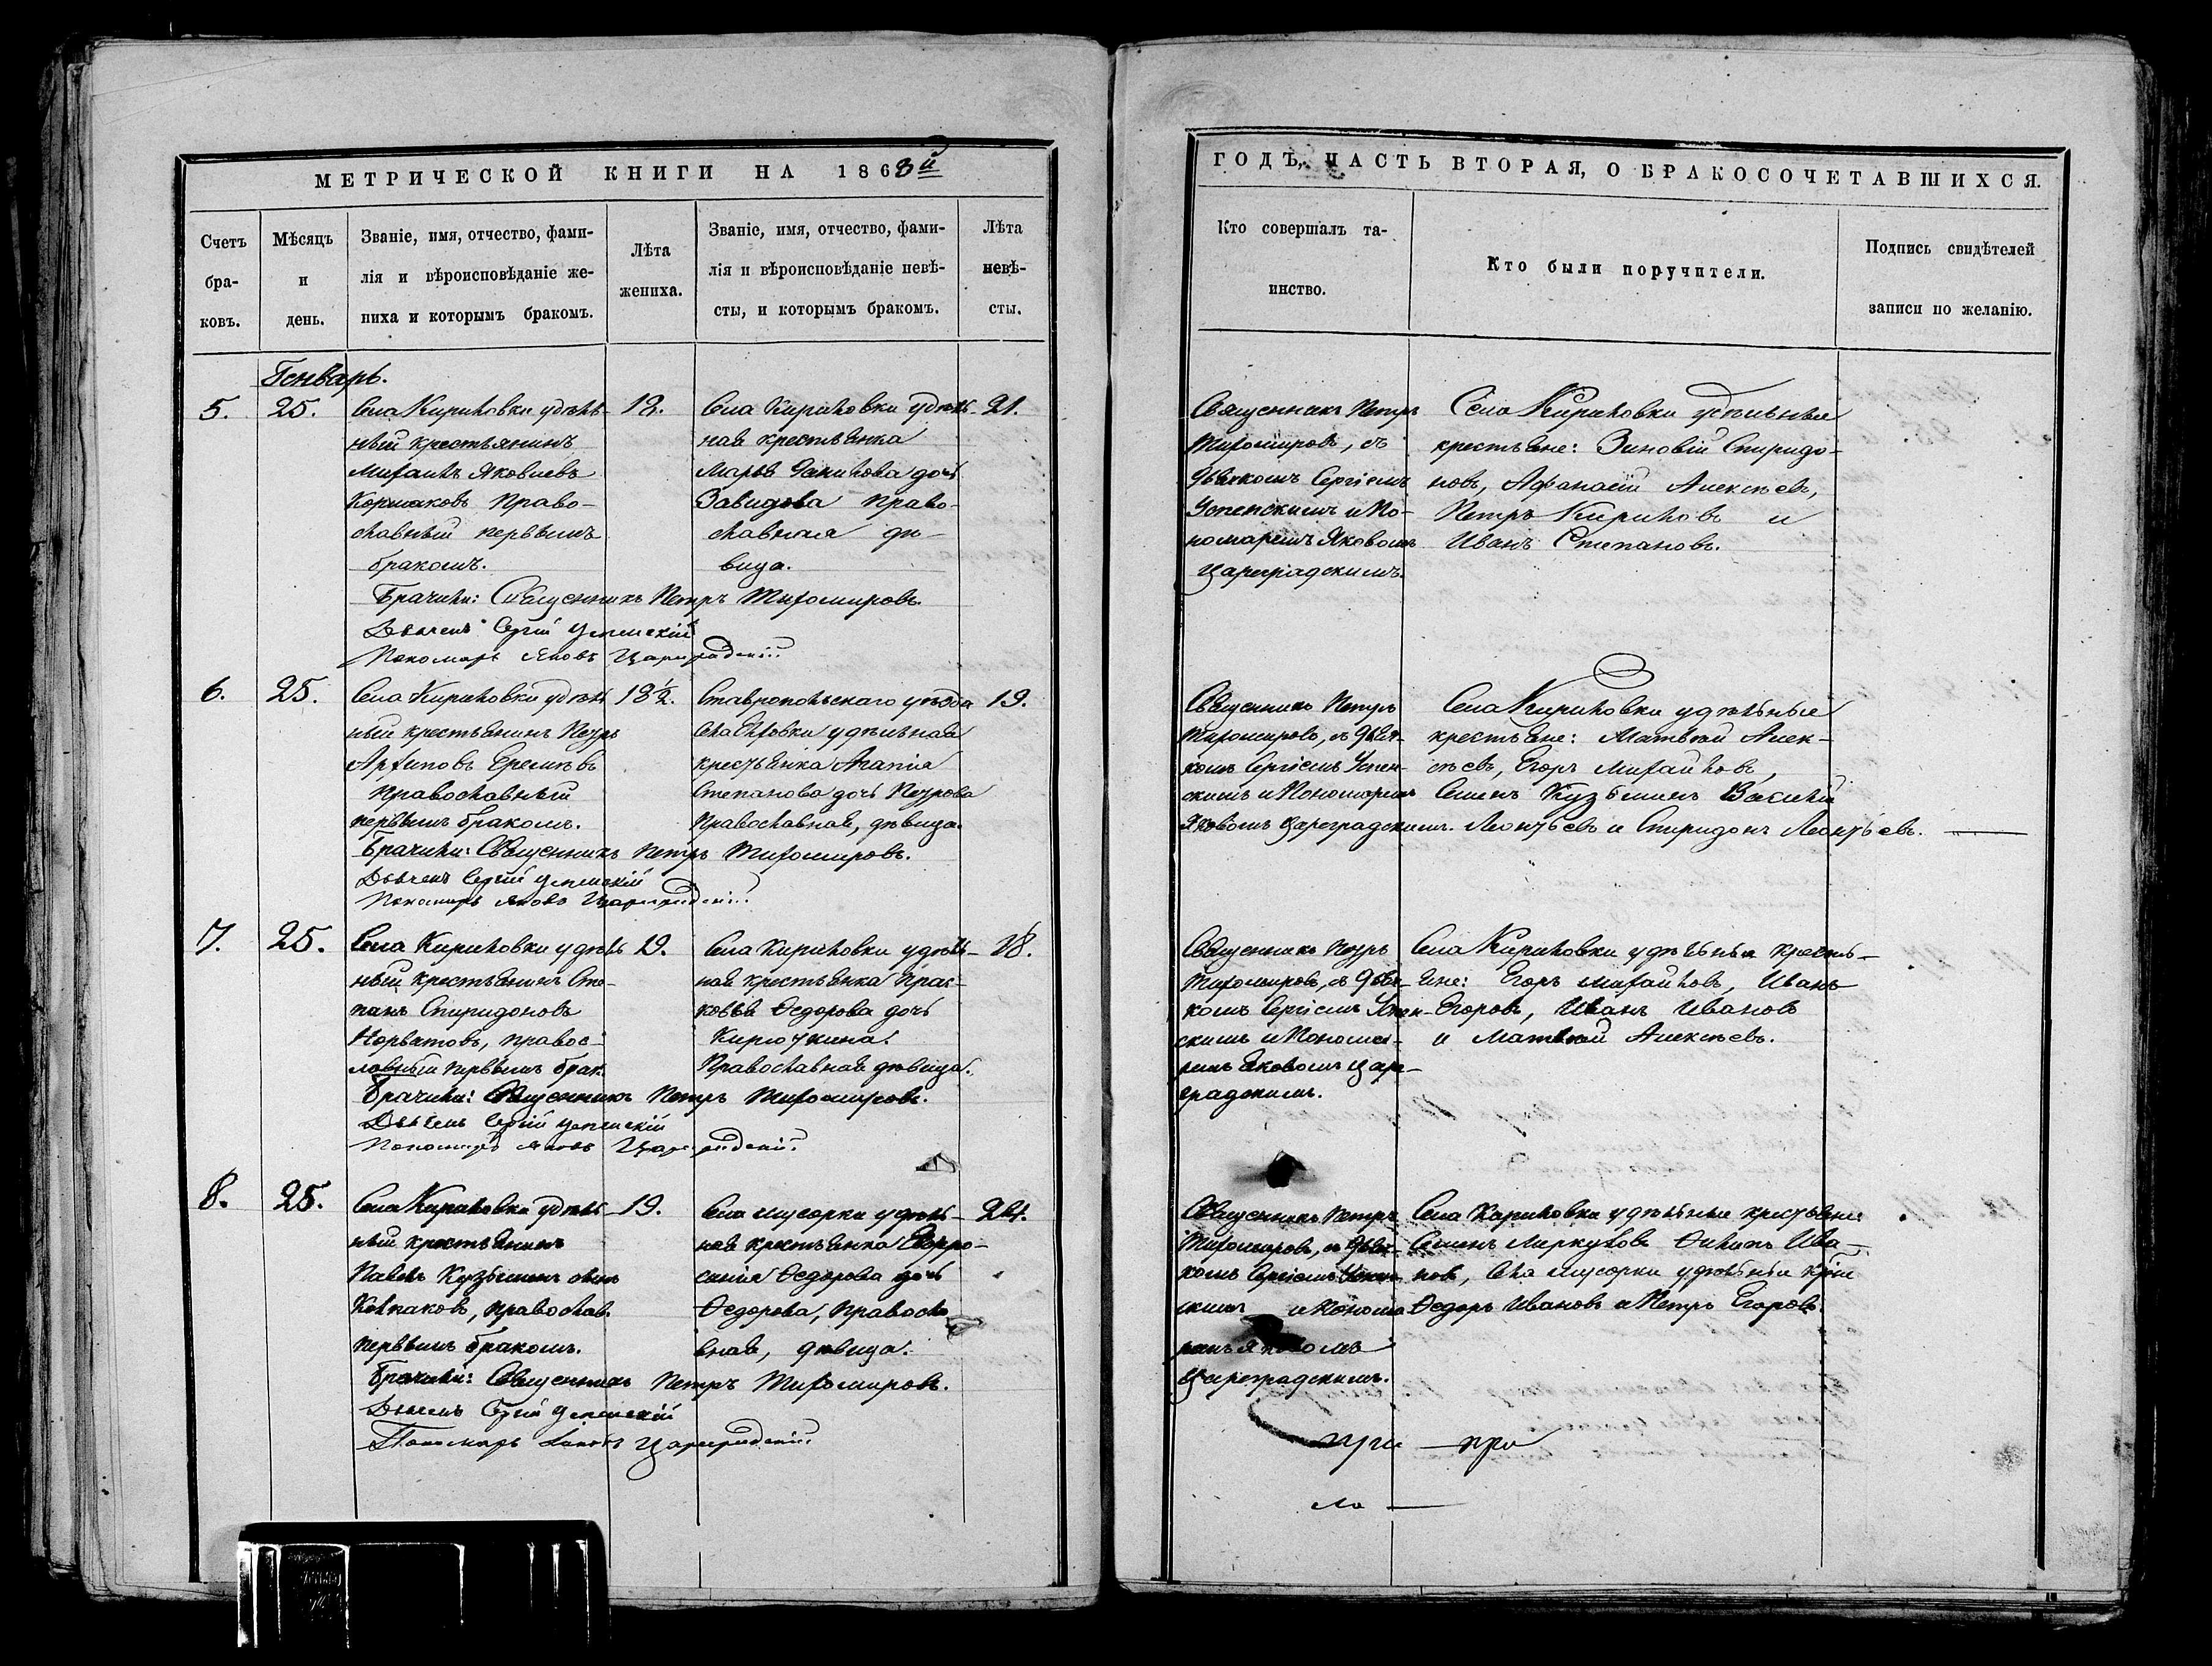 МЕТРИЧЕСКОЙ КНИГИ НА 1863й
Счетъ бра- ковъ.
Мѣсяцъ и день.
Званіе, имя, отчество, фами-
лія и вѣроисповѣданіе же-
ниха и которымъ бракомъ.
Лѣта жениха.
Званіе, имя, отчество, фами-
лія и вѣроисповѣданіе невѣ-
сты, и которымъ бракомъ.
Лѣта невѣ- сты.
Генварь.
5. 25.
Села Кириловки удѣль-
ный крестьянинъ
Михаилъ Яковлевъ
Право-
славный первымъ
бракомъ.
Села Кириловки удѣль- 21.
ная крестьянка
Марья дочь
Завидова право-
славная дѣ-
вица.
Брачили: Священникъ Петръ Тихомировъ.
Дьячекъ Сергій Успенскій
Пономарь Яковъ Цареградскій.
6. 25.
Села Кириловки удѣль 18 1/2.
ный крестьянинъ Петръ
Архиповъ
православный
первымъ бракомъ.
Ставропольскаго уѣзда 19.
удѣльная
крестьянка
Степанова дочь Петрова
Православная, дѣвица.
Брачили: Священникъ Петръ Тихомировъ.
Дьячекъ Сергій Успенскій
Пономарь Яковъ Цареградскій.
7. 25.
Села Кириловки удѣль 19.
ный крестьянинъ Сте-
панъ Спиридоновъ
правос-
лавный первымъ брак.
Села Кириловки удѣль- 18.
ная крестьянка Прас-
ковья Ѳедорова дочь
Кирюткина.
Православная дѣвица.
Брачили: Священникъ Петръ Тихомировъ.
Дьячекъ Сергій Успенскій
Пономарь Яковъ Цареградскій.
8. 25.
Села Кириловки удѣль 19.
ный крестьянинъ
Павелъ Кузьминъ сынъ
Колпаковъ, православ.
первымъ бракомъ.
Села Мусорки удѣль- 21.
ная крестьянка Евфро-
синія Ѳедорова дочь
Ѳедорова, правосла
вная, дѣвица.
Брачили: Священникъ Петръ Тихомировъ.
Дьячекъ Сергій Успенскій
Пономарь Яковъ Цареградскій.
ГОДЪ, ЧАСТЬ ВТОРАЯ, О БРАКОСОЧЕТАВШИХСЯ.
Кто совершалъ та-
инство.
Кто были поручители.
Подпись свидѣтелей
записи по желанію.
Священникъ Петръ
Тихомировъ, съ
Дьячкомъ Сергіемъ
Успенскимъ и По-
номаремъ Яковомъ
Цареградскимъ.
Села Кириловки удѣльные
крестьяне: Зиновій Спиридо-
новъ, Афанасій Алексѣевъ,
Петръ Кириловъ и
Иванъ Степановъ.
Священникъ Петръ
Тихомировъ, съ Дьяч-
комъ Сергіемъ Успен-
скимъ и Пономаремъ
Яковомъ Цареградскимъ.
Села Кириловки удѣльные
крестьяне: Матвѣй Алек-
сѣевъ, Егоръ Михайловъ,
Семенъ Кузьминъ Василій
Леонтьевъ и Спиридонъ Леонтьевъ.
Священникъ Петръ
Тихомировъ, съ Дьяч-
комъ Сергіемъ Успен-
скимъ и Понома-
ремъ Яковомъ Царе-
градскимъ.
Села Кириловки удѣльные кресть-
яне: Егоръ Михайловъ, Иванъ
Егоровъ, Иванъ Ивановъ
и Матвѣй Алексѣевъ.
Священникъ Петръ
Тихомировъ, съ Дьяч-
комъ Сергіемъ Успен
скимъ и Понома
ремъ Яковомъ
Цареградскимъ.
Села Кириловки удѣльные крестьяне
Семенъ Меркуловъ Ива-
новъ, Села Мусорки удѣльные
Ѳедоръ Ивановъ и Петръ Егоровъ.